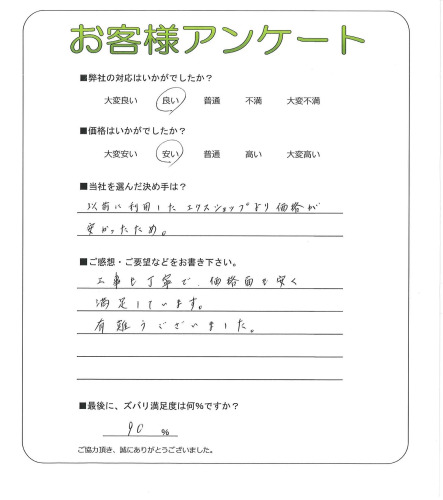 お客様アンケート
■弊社の対応はいかがでしたか？
大変良い 良い 普通 不満 大変不満
■価格はいかがでしたか？
大変安い 安い 普通 高い 大変高い
■当社を選んだ決め手は？
以前に利用した エクスショップより価格が
安かったため。
■ご感想・ご要望などをお書き下さい。
工事も丁寧で、価格面も安く
満足しています。
有難うございました。
■最後に、ズバリ満足度は何%ですか？
90 %
ご協力頂き、誠にありがとうございました。